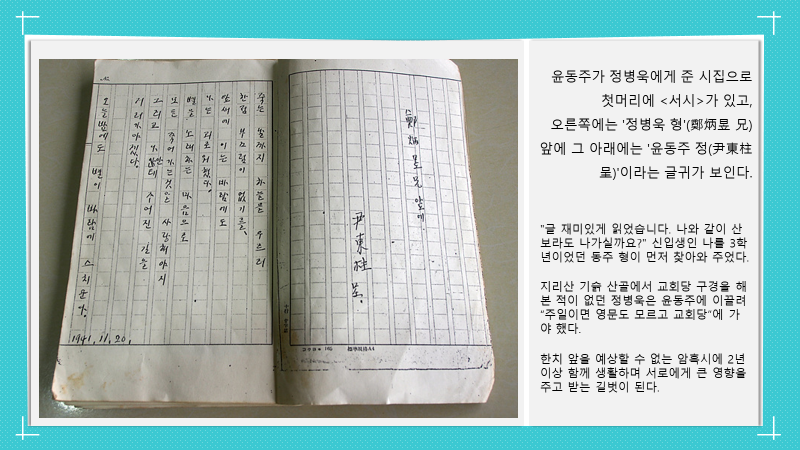 鄭炳昱兄 앞에.
尹東柱 呈.
죽는 날까지 하늘을 우르러
한점 부끄럼이 없기를,
잎새에 이는 바람에도
나는 괴로워했다.
별을 노래하는 마음으로
모든 죽어가는것을 사랑해야지
그리고 나안테 주어진 길을
거러가야겠다.
오늘밤에도 별이 바람에 스치운다.
1941. 11. 20.
윤동주가 정병욱에게 준 시집으로
첫머리에 <서시>가 있고,
오른쪽에는 '정병욱 형'(鄭炳昱 兄)
앞에 그 아래에는 '윤동주 정(尹東柱
呈)'이라는 글귀가 보인다.
"글 재미있게 읽었습니다. 나와 같이 산
보라도 나가실까요?" 신입생인 나를 3학
년이었던 동주 형이 먼저 찾아와 주었다.
지리산 기슭 산골에서 교회당 구경을 해
본 적이 없던 정병욱은 윤동주에 이끌려
"주일이면 영문도 모르고 교회당"에 가
야 했다.
한치 앞을 예상할 수 없는 암흑시에 2년
이상 함께 생활하며 서로에게 큰 영향을
주고 받는 길벗이 된다.